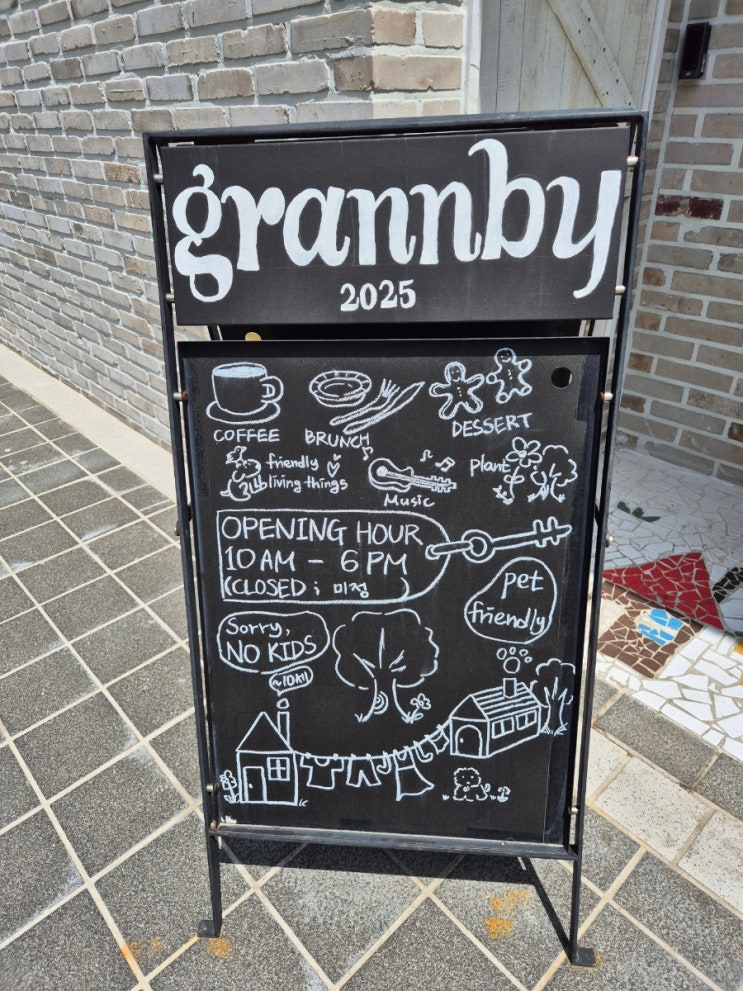 grannby
2025
COFFEE BRUNCH DESSERT
friendly living things
Music
plant
OPENING HOUR
10 AM - 6 PM
(CLOSED ; 미정 )
pet friendly
Sorry,
NO KIDS
~10세